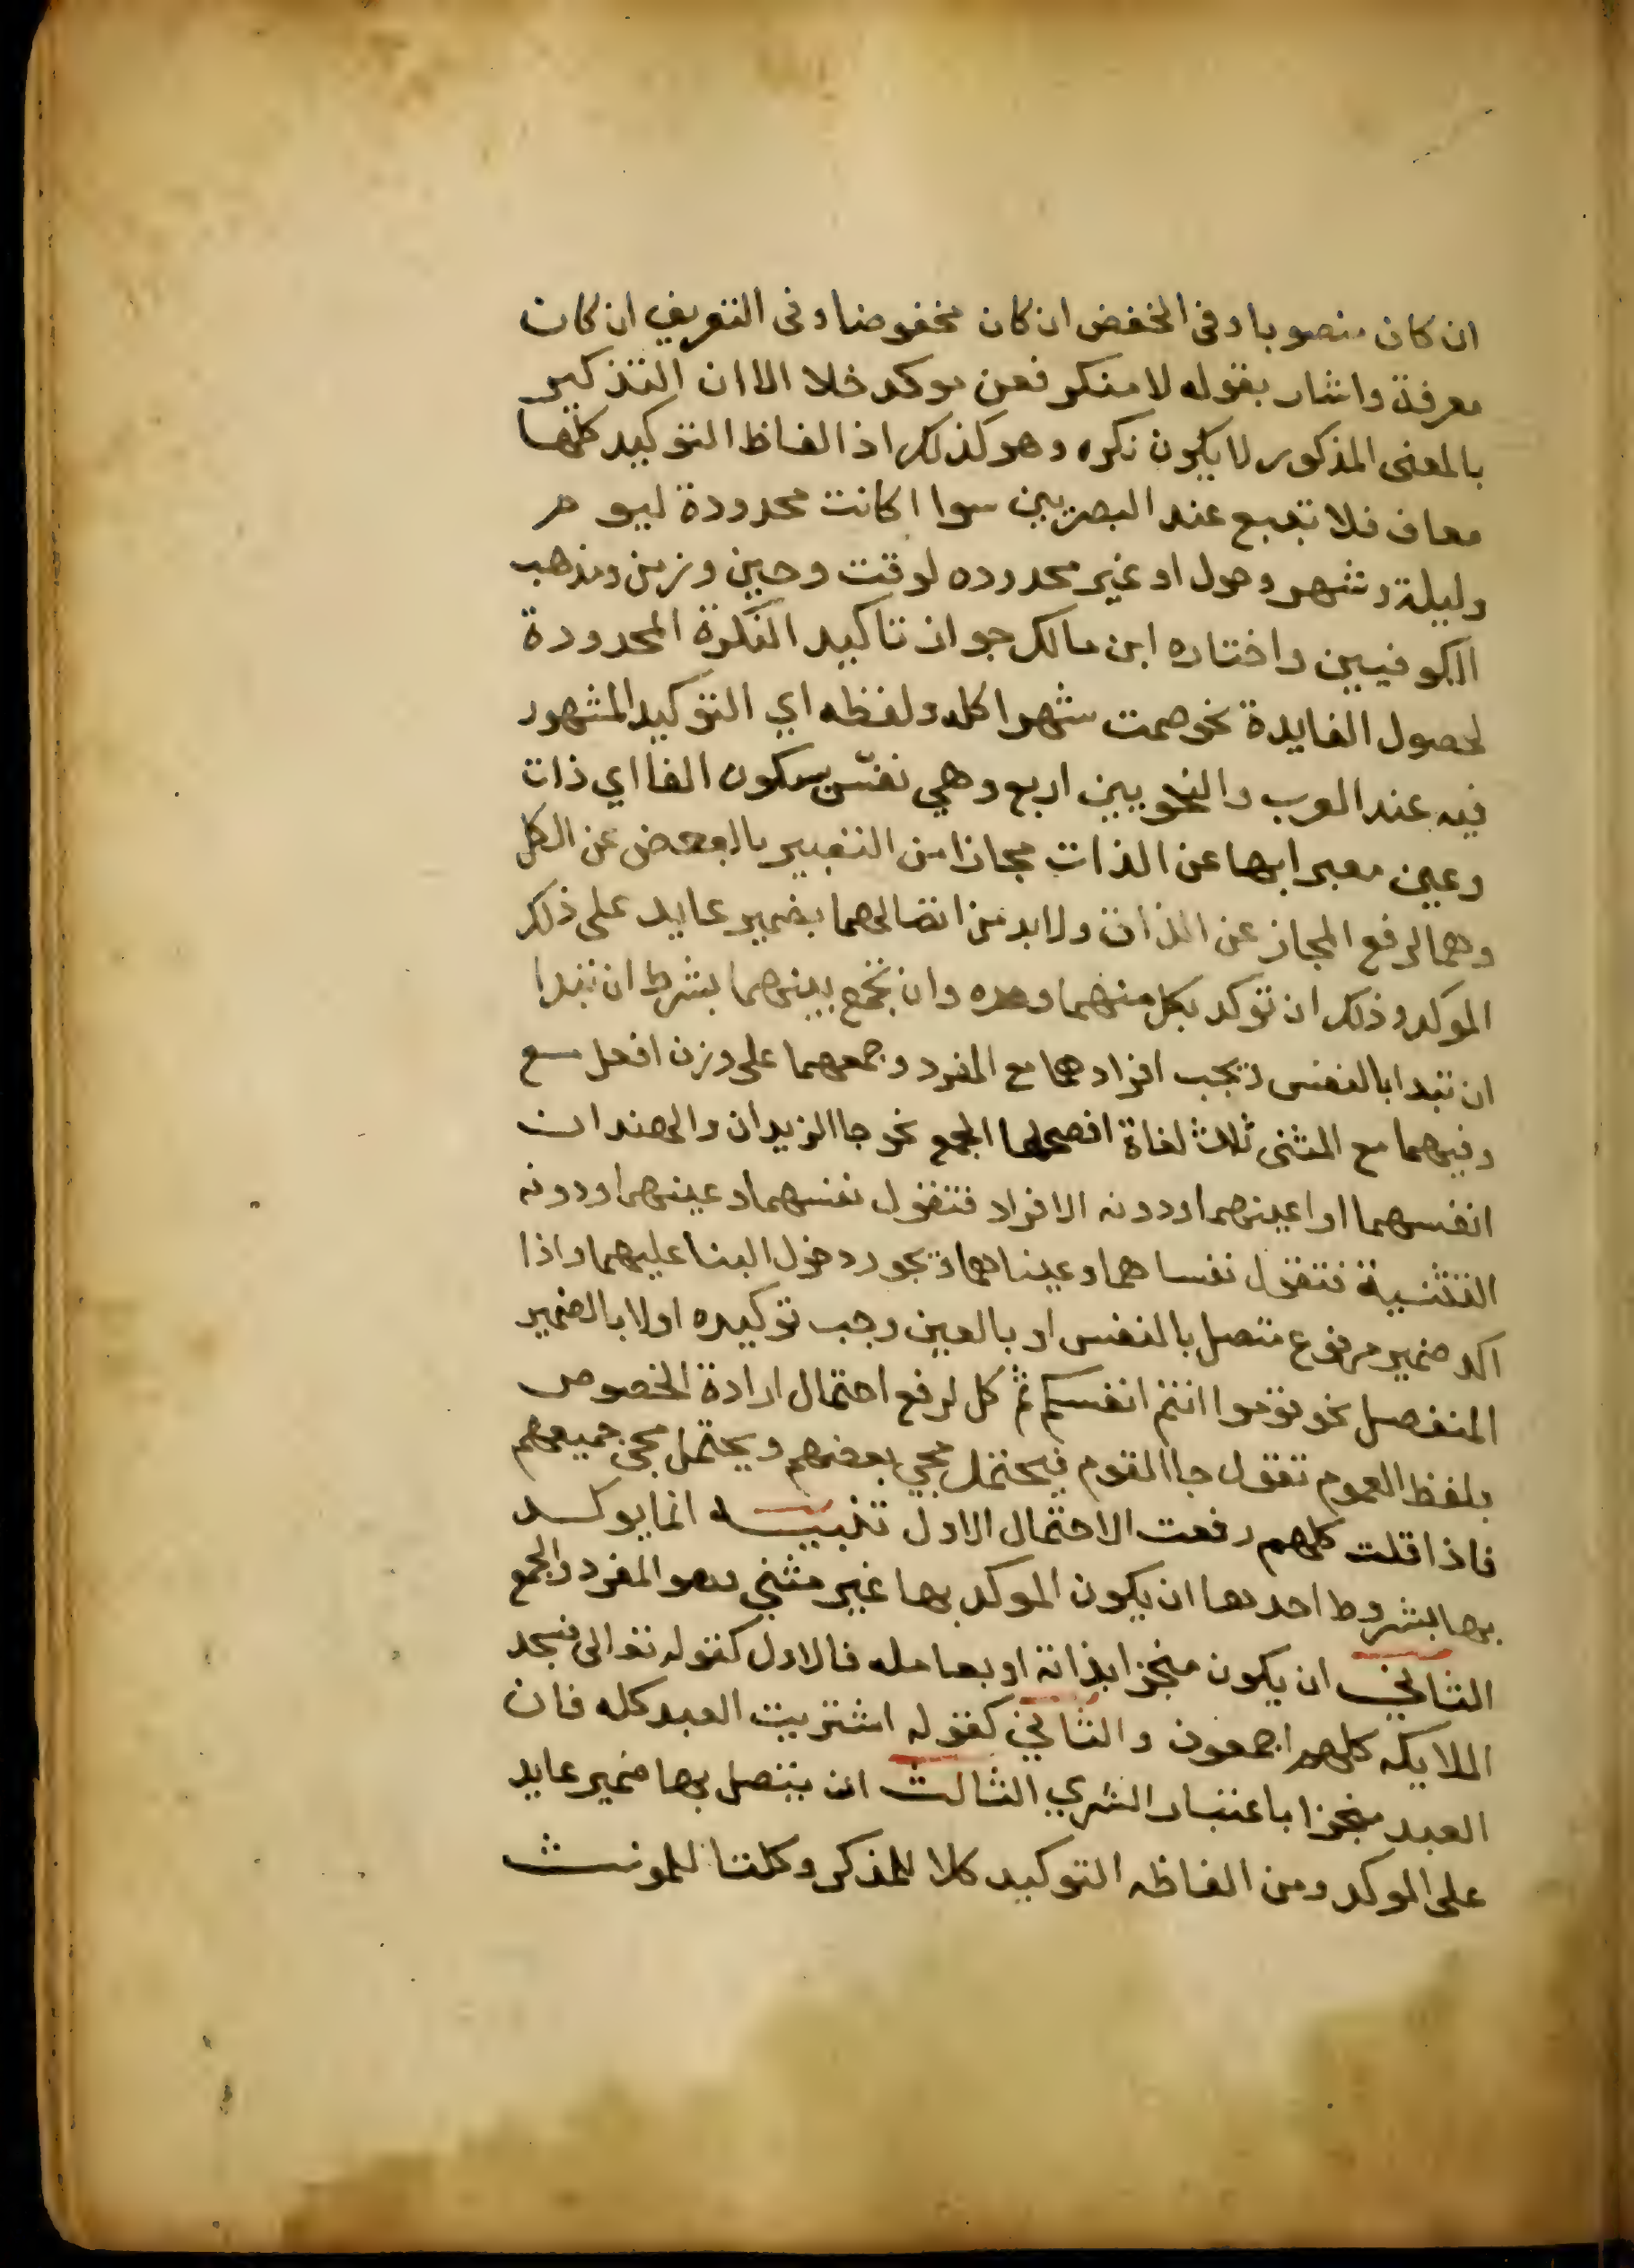 ان كان منصوبا وفى الخفض ان كان مخفوضا وفى التعريف ان كان
معرفة واشار بقوله لا منكر فمن موكد خلا الا ان التذكير
بالمعنى المذكور لا يكون نكره وهو كذلك اذ الفاظ التوكيد كلها
معاف فلا تتبع عند البصريين سوا اكانت محدودة ليوم
وليلة وشهر وحول او غير محدوده لوقت وحين وزمن ومذهب
الكوفيين واختاره ابن مالك جواز تاكيد النكرة المحدودة
لحصول الفايدة نحو صمت شهرا كله ولفظه اي التوكيد المشهور
فيه عند العرب والنحويين اربع وهي نفس بسكون الفا اي ذات
وعين معبرا بها عن الذات مجازا من التعبير بالبعض عن الكل
وهما لرفع المجاز عن الذات ولابد من اتصالهما بضمير عايد على ذلك
الموكد وذلك ان توكد بكل منهما وحده وان تجمع بينهما بشرط ان تبدا
ان تبدا بالنفس ويجب افرادهما مع المفرد وجمعهما على وزن افعل مع
وفيهما مع المثنى ثلاث لغاة افصحها الجمع نحو جا الزيدان والهندان
انفسهما او اعينهما ودونه الافراد فتقول نفسهما وعينهما ودونه
التثنية فتقول نفساهما وعيناهما ويجوز دخول البا عليهما واذا
اكد ضمير مرفوع متصل بالنفس او بالعين وجب توكيده اولا بالضمير
المنفصل نحو قوموا انتم انفسكم ثم كل لرفع احتمال ارادة الخصوص
بلفظ العموم تقول جا القوم فيحتمل مجي بعضهم ويحتمل مجي جميعهم
فاذا قلت كلهم رفعت الاحتمال الاول تنبيه انما يوكد
بها بشروط احدها ان يكون الموكد بها غير مثنى وهو المفرد والجمع
الثاني ان يكون متجزا بذاته او بعامله فالاول كقوله تعالى فسجد
الملايكه كلهم اجمعون والثاني كقوله اشتريت العبد كله فان
العبد متجزا باعتبار الشري الثالث ان يتصل بها ضمير عايد
على الموكد ومن الفاظه التوكيد كلا للمذكر وكلتا للمونث